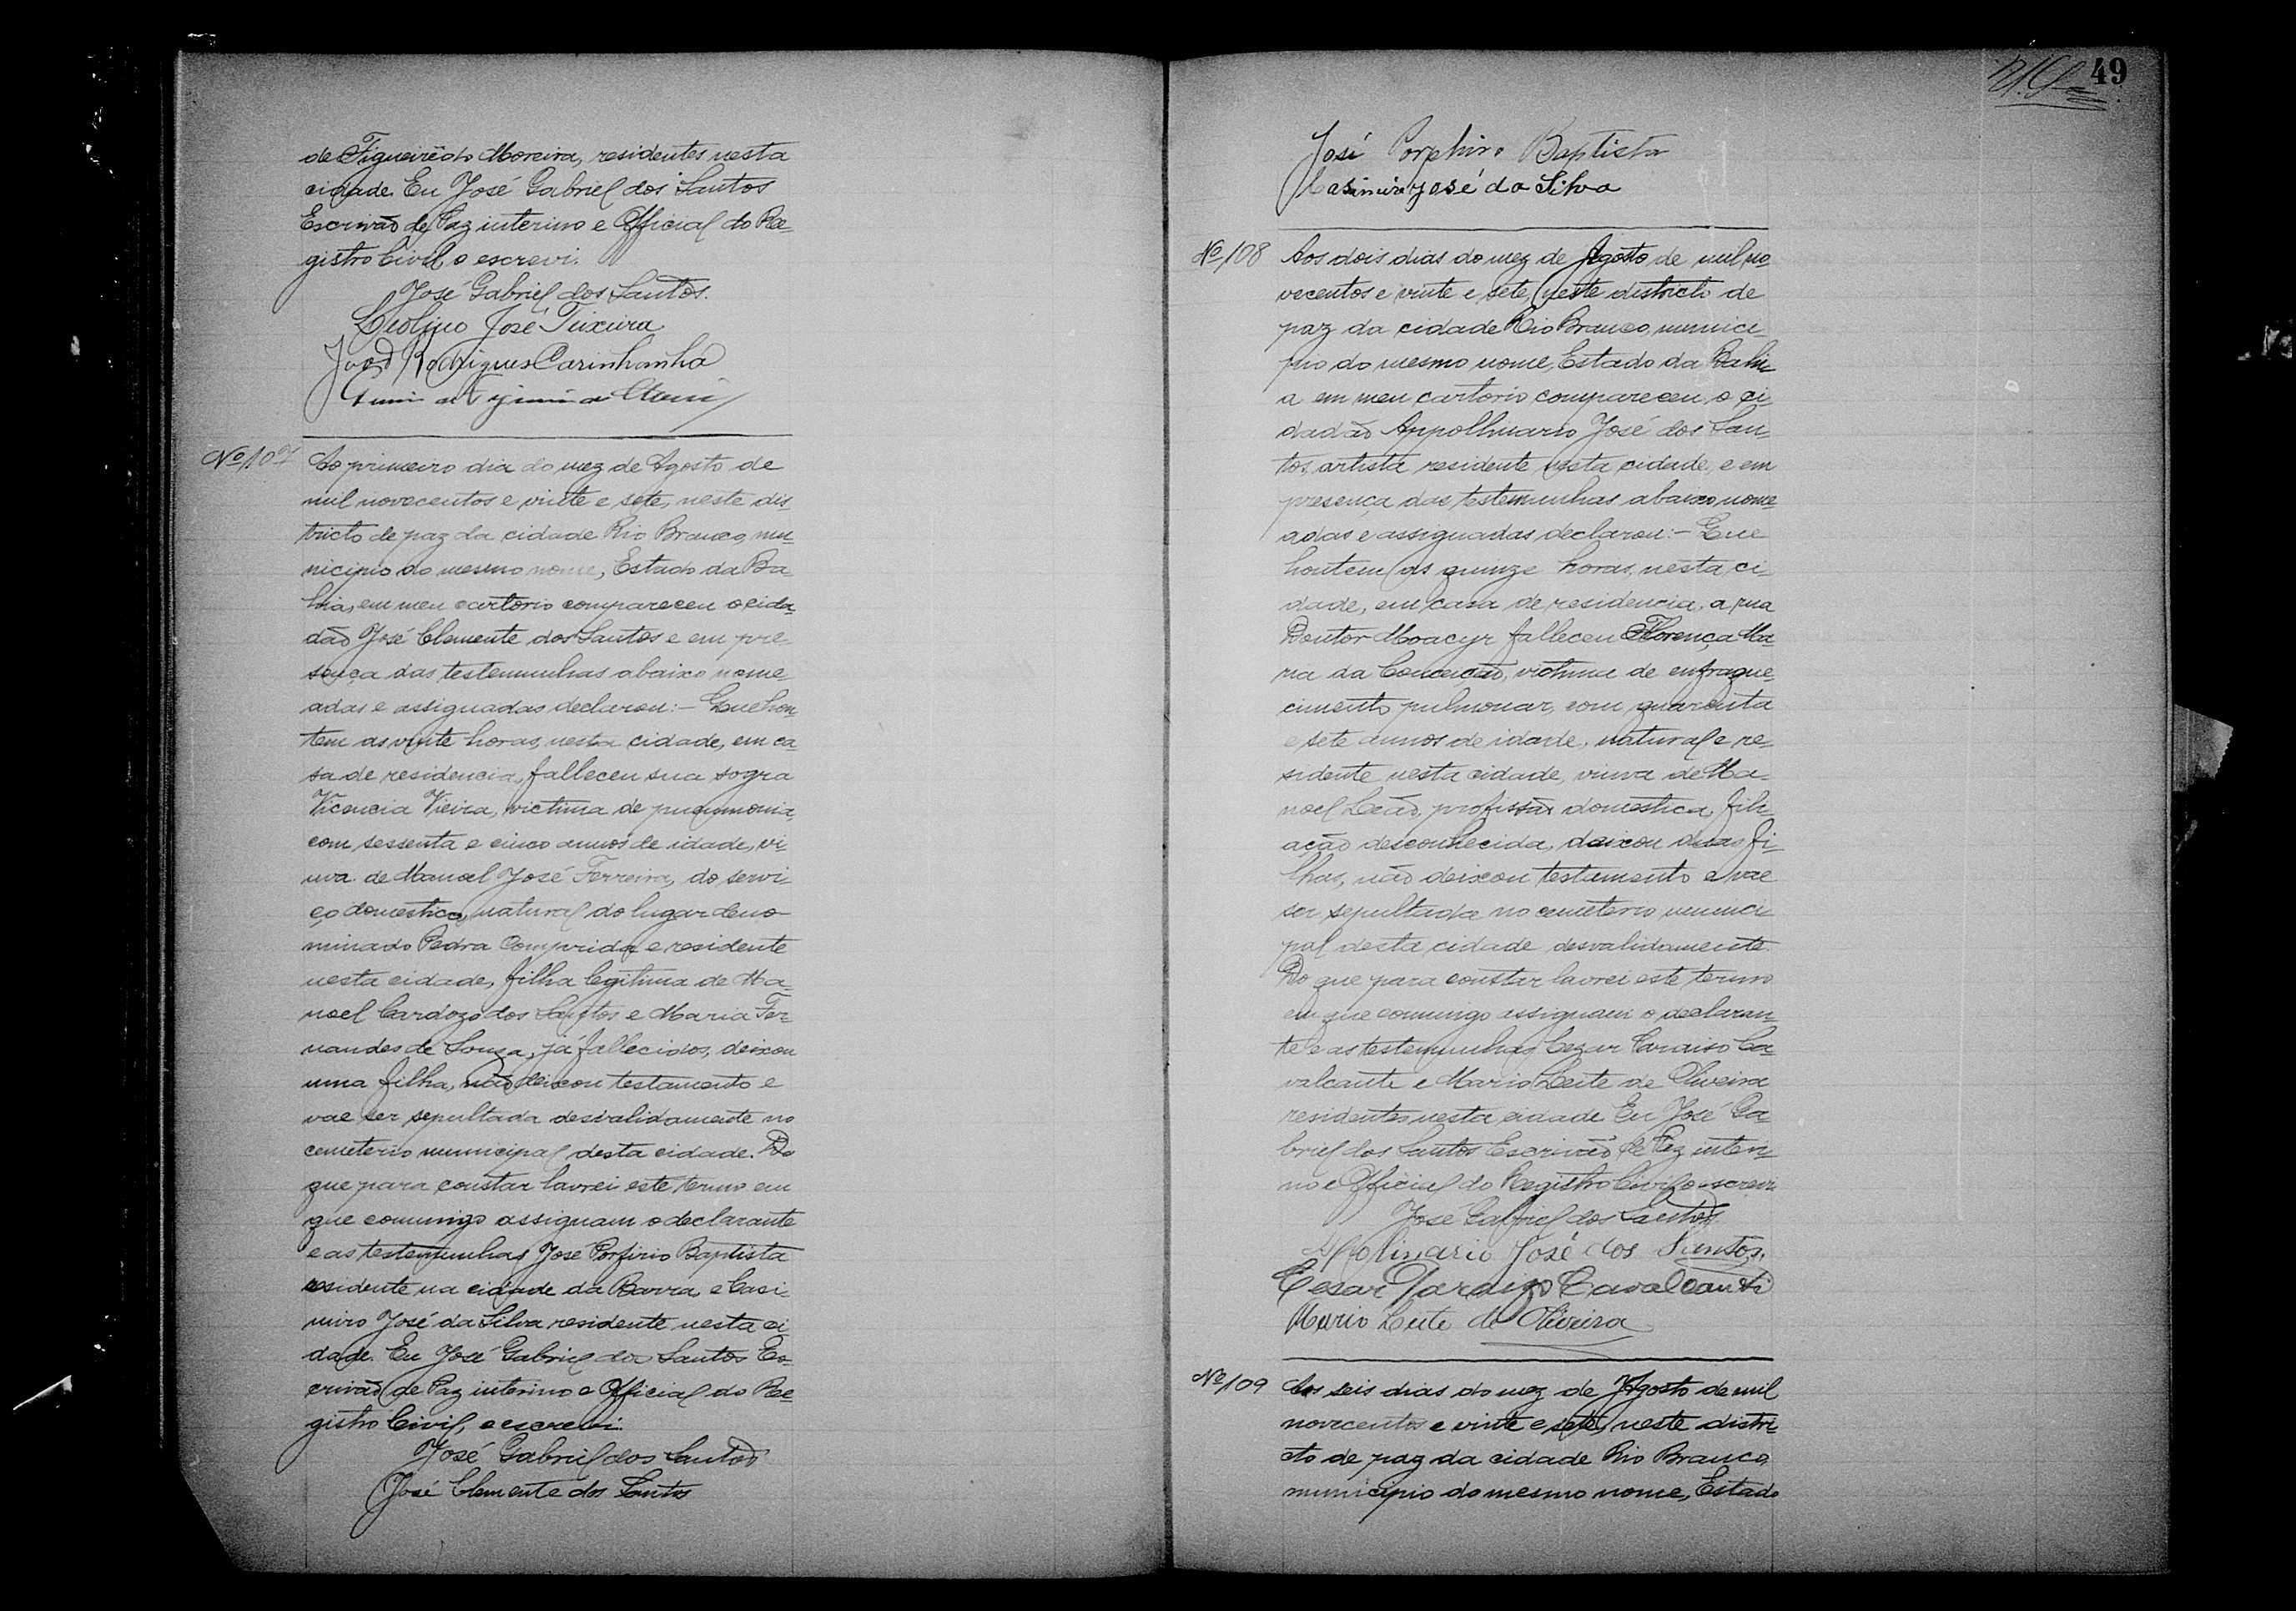 de Figueirêdo Moreira, residentes nesta
cidade. Eu José Gabriel dos Santos
Escrivão de Paz interino e Official do Re=
gistro Civil o escrevi.
José Gabriel dos Santos.
Leolino José Teixeira
João Rodrigues Carinhanha
Nº 107
Ao primeiro dia do mez de Agosto de
mil novecentos e vinte e sete, neste dis
tricto de paz da cidade Rio Branco, mu=
nicipio do mesmo nome, Estado da Ba=
hia, em meu cartorio compareceu o cida=
dão José Clemente dos Santos e em pre=
sença das testemunhas abaixo nome=
adas e assignadas declarou:- Que hon=
tem as vinte horas, nesta cidade, em ca=
sa de residencia, falleceu sua sogra
Vicencia Vieira, victima de pneumonia,
com sessenta e cinco annos de idade, vi=
uva de Manoel José Ferreira, do servi=
ço domestico, natural do lugar deno=
minado Pedra Comprida e residente
nesta cidade, filha legitima de Ma=
noel Cardozo dos Santos e Maria Fer=
nandes de Souza, já fallecidos, deixou
uma filha, não deixou testamento e
vae ser sepultada desvalidamente no
cemeterio municipal desta cidade. Do
que para constar lavrei este termo em
que commigo assignam o declarante
e as testemunhas José Porfirio Baptista
residente na cidade da Barra e Casi=
miro José da Silva residente nesta ci
dade. Eu José Gabriel dos Santos Es=
crivão de Paz interino e Official do Re=
gistro Civil, o escrevi.
José Gabriel dos Santos
José Clemente dos Santos
49
José Porphiro Baptista
Casimiro José da Silva
Nº 108
Aos dois dias do mez de Agosto de mil no
vecentos e vinte e sete, neste districto de
paz da cidade Rio Branco, munici=
pio do mesmo nome, Estado da Bahi=
a em meu cartorio compareceu o ci=
dadão Appollinario José dos San=
tos, artista residente nesta cidade, e em
presença das testemunhas abaixo nome=
adas e assignadas declarou:- Que
hontem as quinze horas, nesta ci=
dade, em casa de residencia, a rua
Doutor Moacyr falleceu Florença Ma=
ria da Conceição, victima de enfraque=
cimento pulmonar, com quarenta
e sete annos de idade, natural e re=
sidente nesta cidade, viuva de Ma=
noel Leão, profissão domestica, fili=
ação desconhecida, deixou duas fi=
lhas, não deixou testamento e vae
ser sepultada no cemeterio munici=
pal desta cidade desvalidamente.
Do que para constar lavrei este termo
em que commigo assignam o declaran=
te e as testemunhas Cezar Paraiso Ca=
valcante e Mario Leite de Oliveira
residentes nesta cidade Eu José Ga=
briel dos Santos Escrivão de Paz interi=
no e Official do Registro Civil o escrevi
José Gabriel dos Santos
Apolinario José dos Santos,
Cesar Paraizo Cavalcanti
Mario Leite de Oliveira
Nº 109
Aos seis dias do mez de Agosto de mil
novecentos e vinte e sete, neste distri=
cto de paz da cidade Rio Branco,
municipio do mesmo nome, Estado